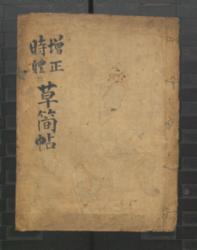 增正
時體
草簡帖